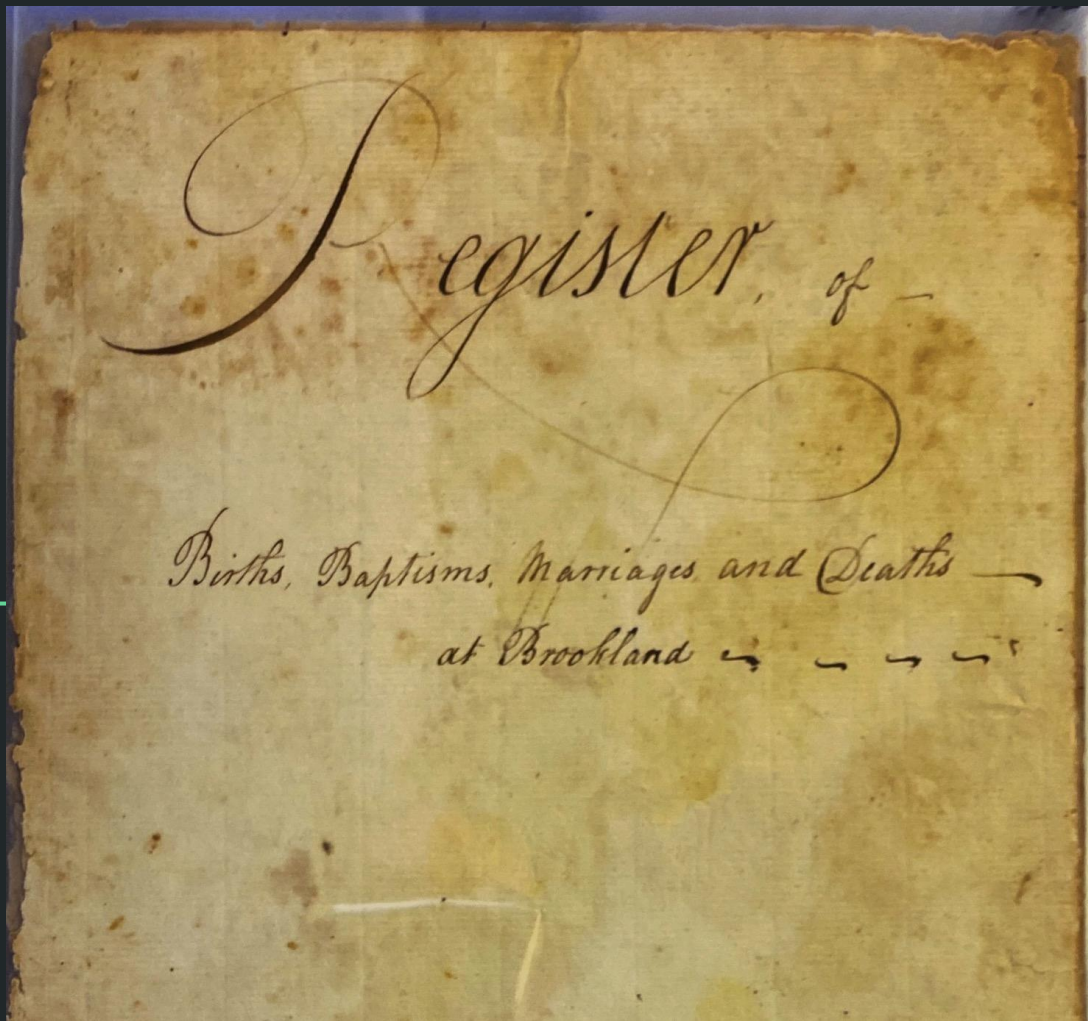 Register, of —
Births, Baptisms, Marriages and Deaths —
at Brookland - - - -